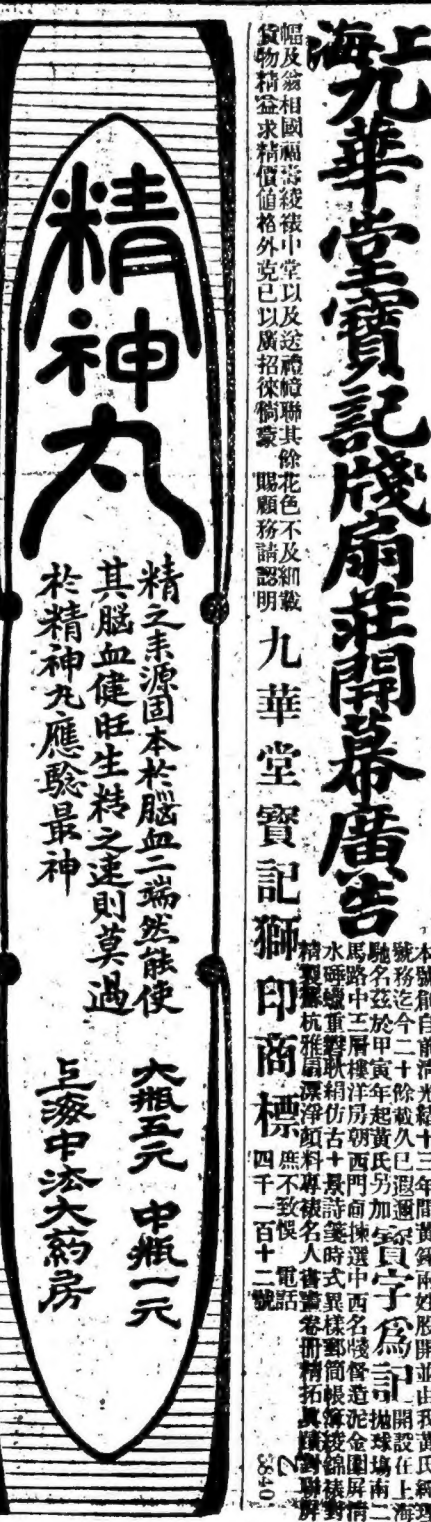 上海九華堂寶記牋扇莊開幕廣告
本號創自前清光緒十三年間黃錦兩姓股開並由我黃氏經理
號務迄今二十餘載久已遐邇
馳名茲於甲寅年起黃氏另加寶字爲記開設在上海
拋球塲南二
馬路中三層樓洋房朝西門面揀選中西名牋督造泥金圍屏清
水硾蠟重礬耿絹仿古十景詩箋時式異樣郵簡帳簿綾錦裱對
精製蘇杭雅扇漂淨顏料專裱名人書畫卷册精拓眞蹟對聯屏
幅及翁相國福壽綾裱中堂以及送禮幛聯其餘花色不及細載
貨物精益求精價値格外克已以廣招徠倘蒙 賜顧務請認明
九華堂寶記獅印商標
庶不致悞 電話
四千一百十二號
乙
3840
精神丸
精之來源固本於腦血二端然能使
其腦血健旺生精之速則莫過
於精神丸應驗最神
大瓶五元 中瓶一元
上海中法大藥房